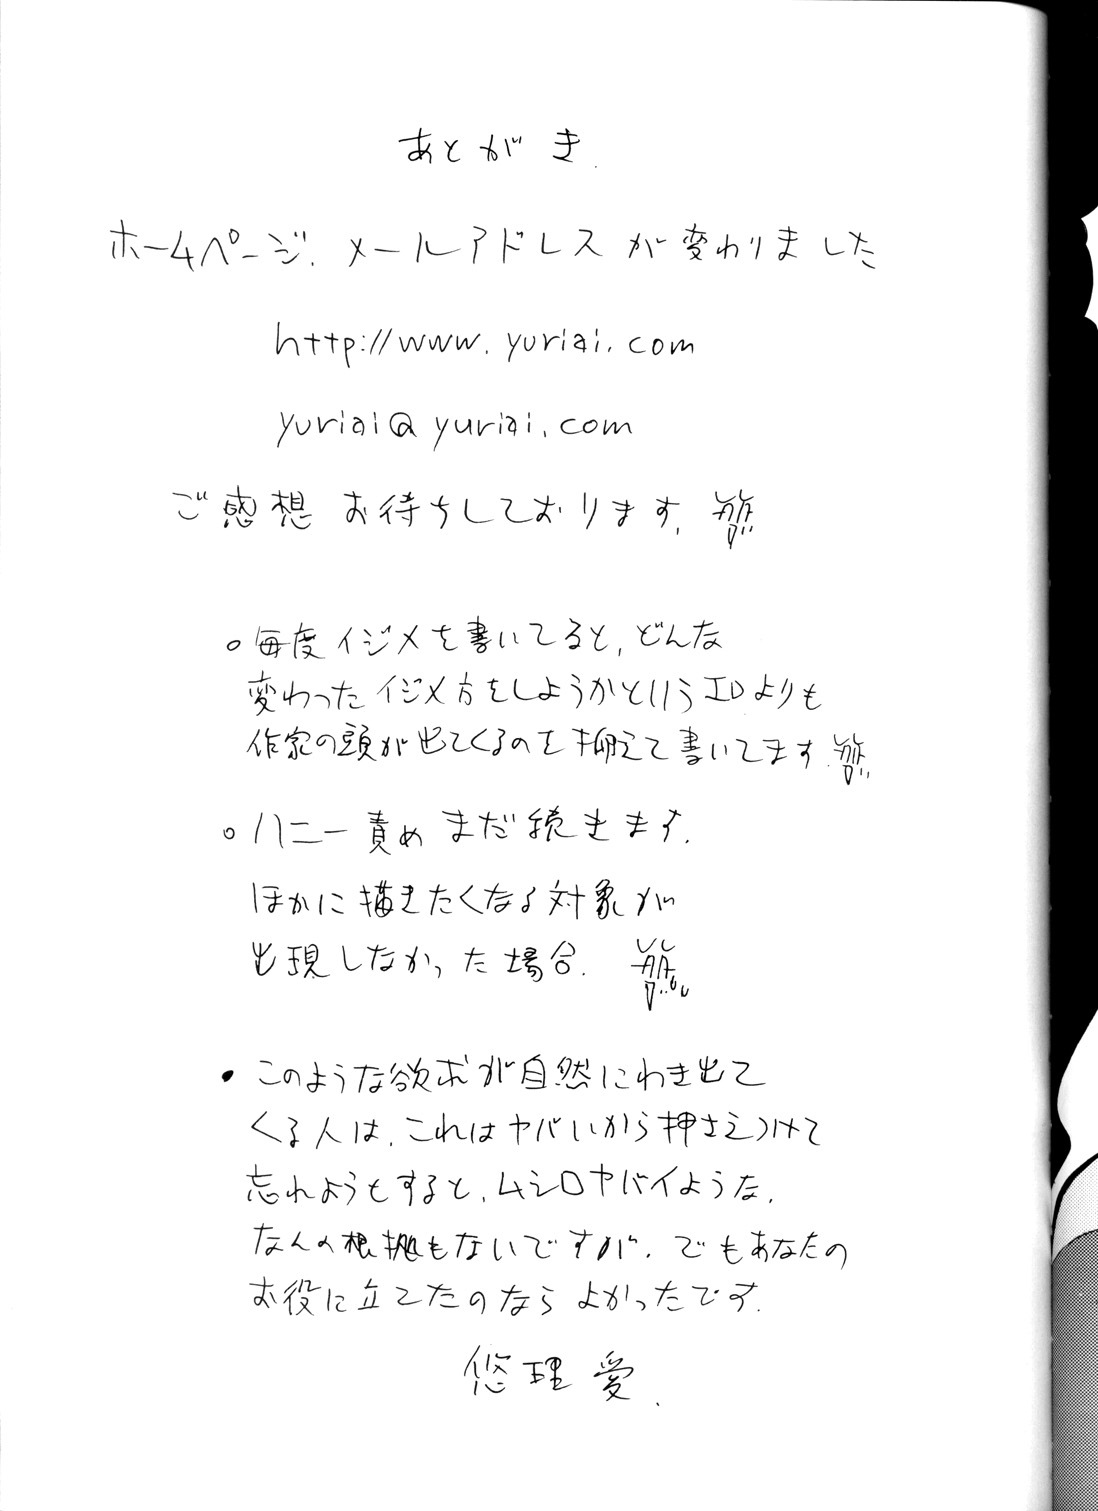 あとがき.
ホームページ、メールアドレスが変わりました
http://www.yuriai.com
yuriai@yuriai.com
ご感想お待ちしております.
○毎度イジメを書いてると、どんな
変わったイジメ方をしようかというエロよりも
作家の頭が出てくるのを抑えて書いてます.
○ハニー責めまだ続きます.
ほかに描きたくなる対象が
出現しなかった場合.
・このような欲求が自然にわき出て
くる人は、これはヤバいから押さえつけて
忘れようとすると、ムシロヤバイような.
なんの根拠もないですが、でもあなたの
お役に立てたのならよかったです.
悠理愛.